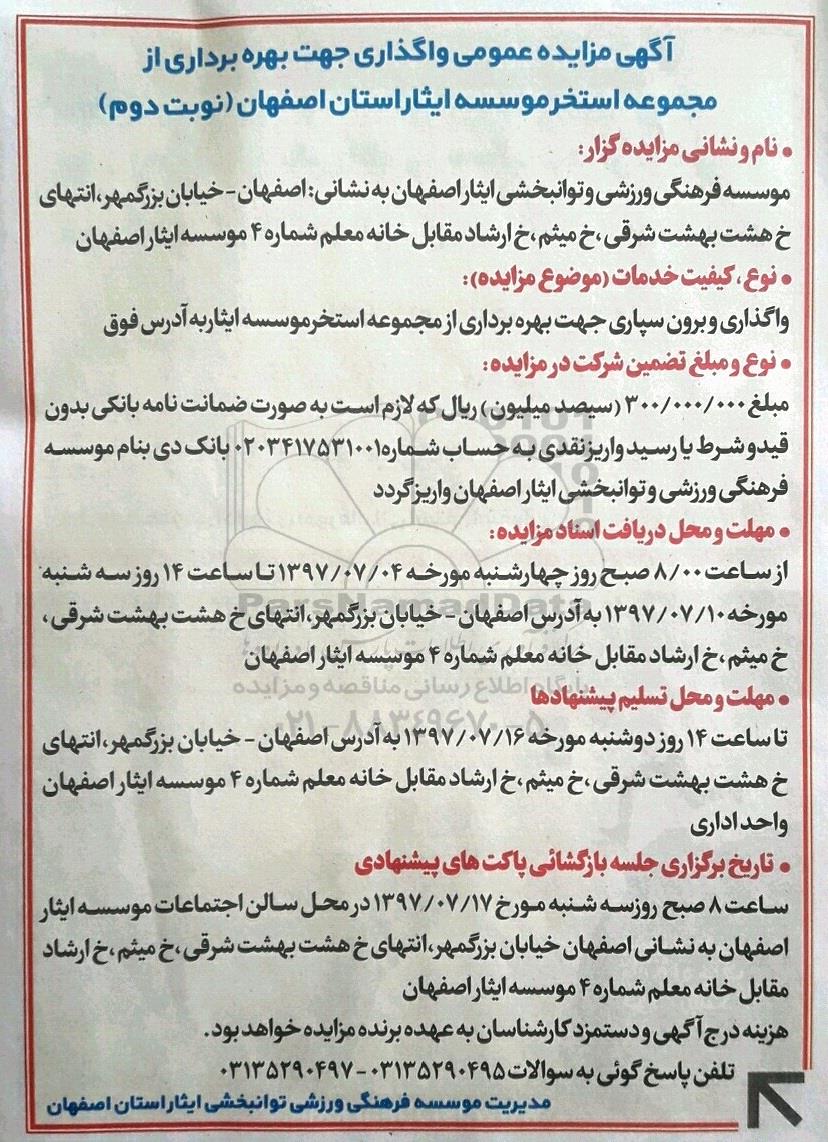 آگهی مزایده عمومی واگذاری جهت بهره برداری از
مجموعه استخر موسسه ایثار استان اصفهان (نوبت دوم)
• نام و نشانی مزایده گزار:
موسسه فرهنگی ورزشی و توانبخشی ایثار اصفهان به نشانی: اصفهان - خیابان بزرگمهر، انتهای
خ هشت بهشت شرقی، خ میثم، خ ارشاد مقابل خانه معلم شماره ۴ موسسه ایثار اصفهان
• نوع، کیفیت خدمات (موضوع مزایده):
واگذاری و برون سپاری جهت بهره برداری از مجموعه استخر موسسه ایثار به آدرس فوق
• نوع و مبلغ تضمین شرکت در مزایده:
مبلغ ۳۰۰/۰۰۰/۰۰۰ (سیصد میلیون) ریال که لازم است به صورت ضمانت نامه بانکی بدون
قید و شرط یا رسید واریز نقدی به حساب شماره ۰۲۰۳۴۱۷۵۳۱۰۰۱ بانک دی بنام موسسه
فرهنگی ورزشی و توانبخشی ایثار اصفهان واریز گردد
• مهلت و محل دریافت اسناد مزایده:
از ساعت ۸/۰۰ صبح روز چهارشنبه مورخه ۱۳۹۷/۰۷/۰۴ تا ساعت ۱۴ روز سه شنبه
مورخه ۱۳۹۷/۰۷/۱۰ به آدرس اصفهان - خیابان بزرگمهر، انتهای خ هشت بهشت شرقی،
ParsNamadData
خ میثم، خ ارشاد مقابل خانه معلم شماره ۴ موسسه ایثار اصفهان
پایگاه اطلاع رسانی مناقصه و مزایده
• مهلت و محل تسلیم پیشنهادها
۰۲۱-۸۸۳۴۹۶۷۰-۵
تا ساعت ۱۴ روز دوشنبه مورخه ۱۳۹۷/۰۷/۱۶ به آدرس اصفهان - خیابان بزرگمهر، انتهای
خ هشت بهشت شرقی، خ میثم، خ ارشاد مقابل خانه معلم شماره ۴ موسسه ایثار اصفهان
واحد اداری
• تاریخ برگزاری جلسه بازگشائی پاکت های پیشنهادی
ساعت ۸ صبح روز سه شنبه مورخ ۱۳۹۷/۰۷/۱۷ در محل سالن اجتماعات موسسه ایثار
اصفهان به نشانی اصفهان خیابان بزرگمهر، انتهای خ هشت بهشت شرقی، خ میثم، خ ارشاد
مقابل خانه معلم شماره ۴ موسسه ایثار اصفهان
هزینه درج آگهی و دستمزد کارشناسان به عهده برنده مزایده خواهد بود.
تلفن پاسخ گوئی به سوالات ۰۳۱۳۵۲۹۰۴۹۵ - ۰۳۱۳۵۲۹۰۴۹۷
مدیریت موسسه فرهنگی ورزشی توانبخشی ایثار استان اصفهان